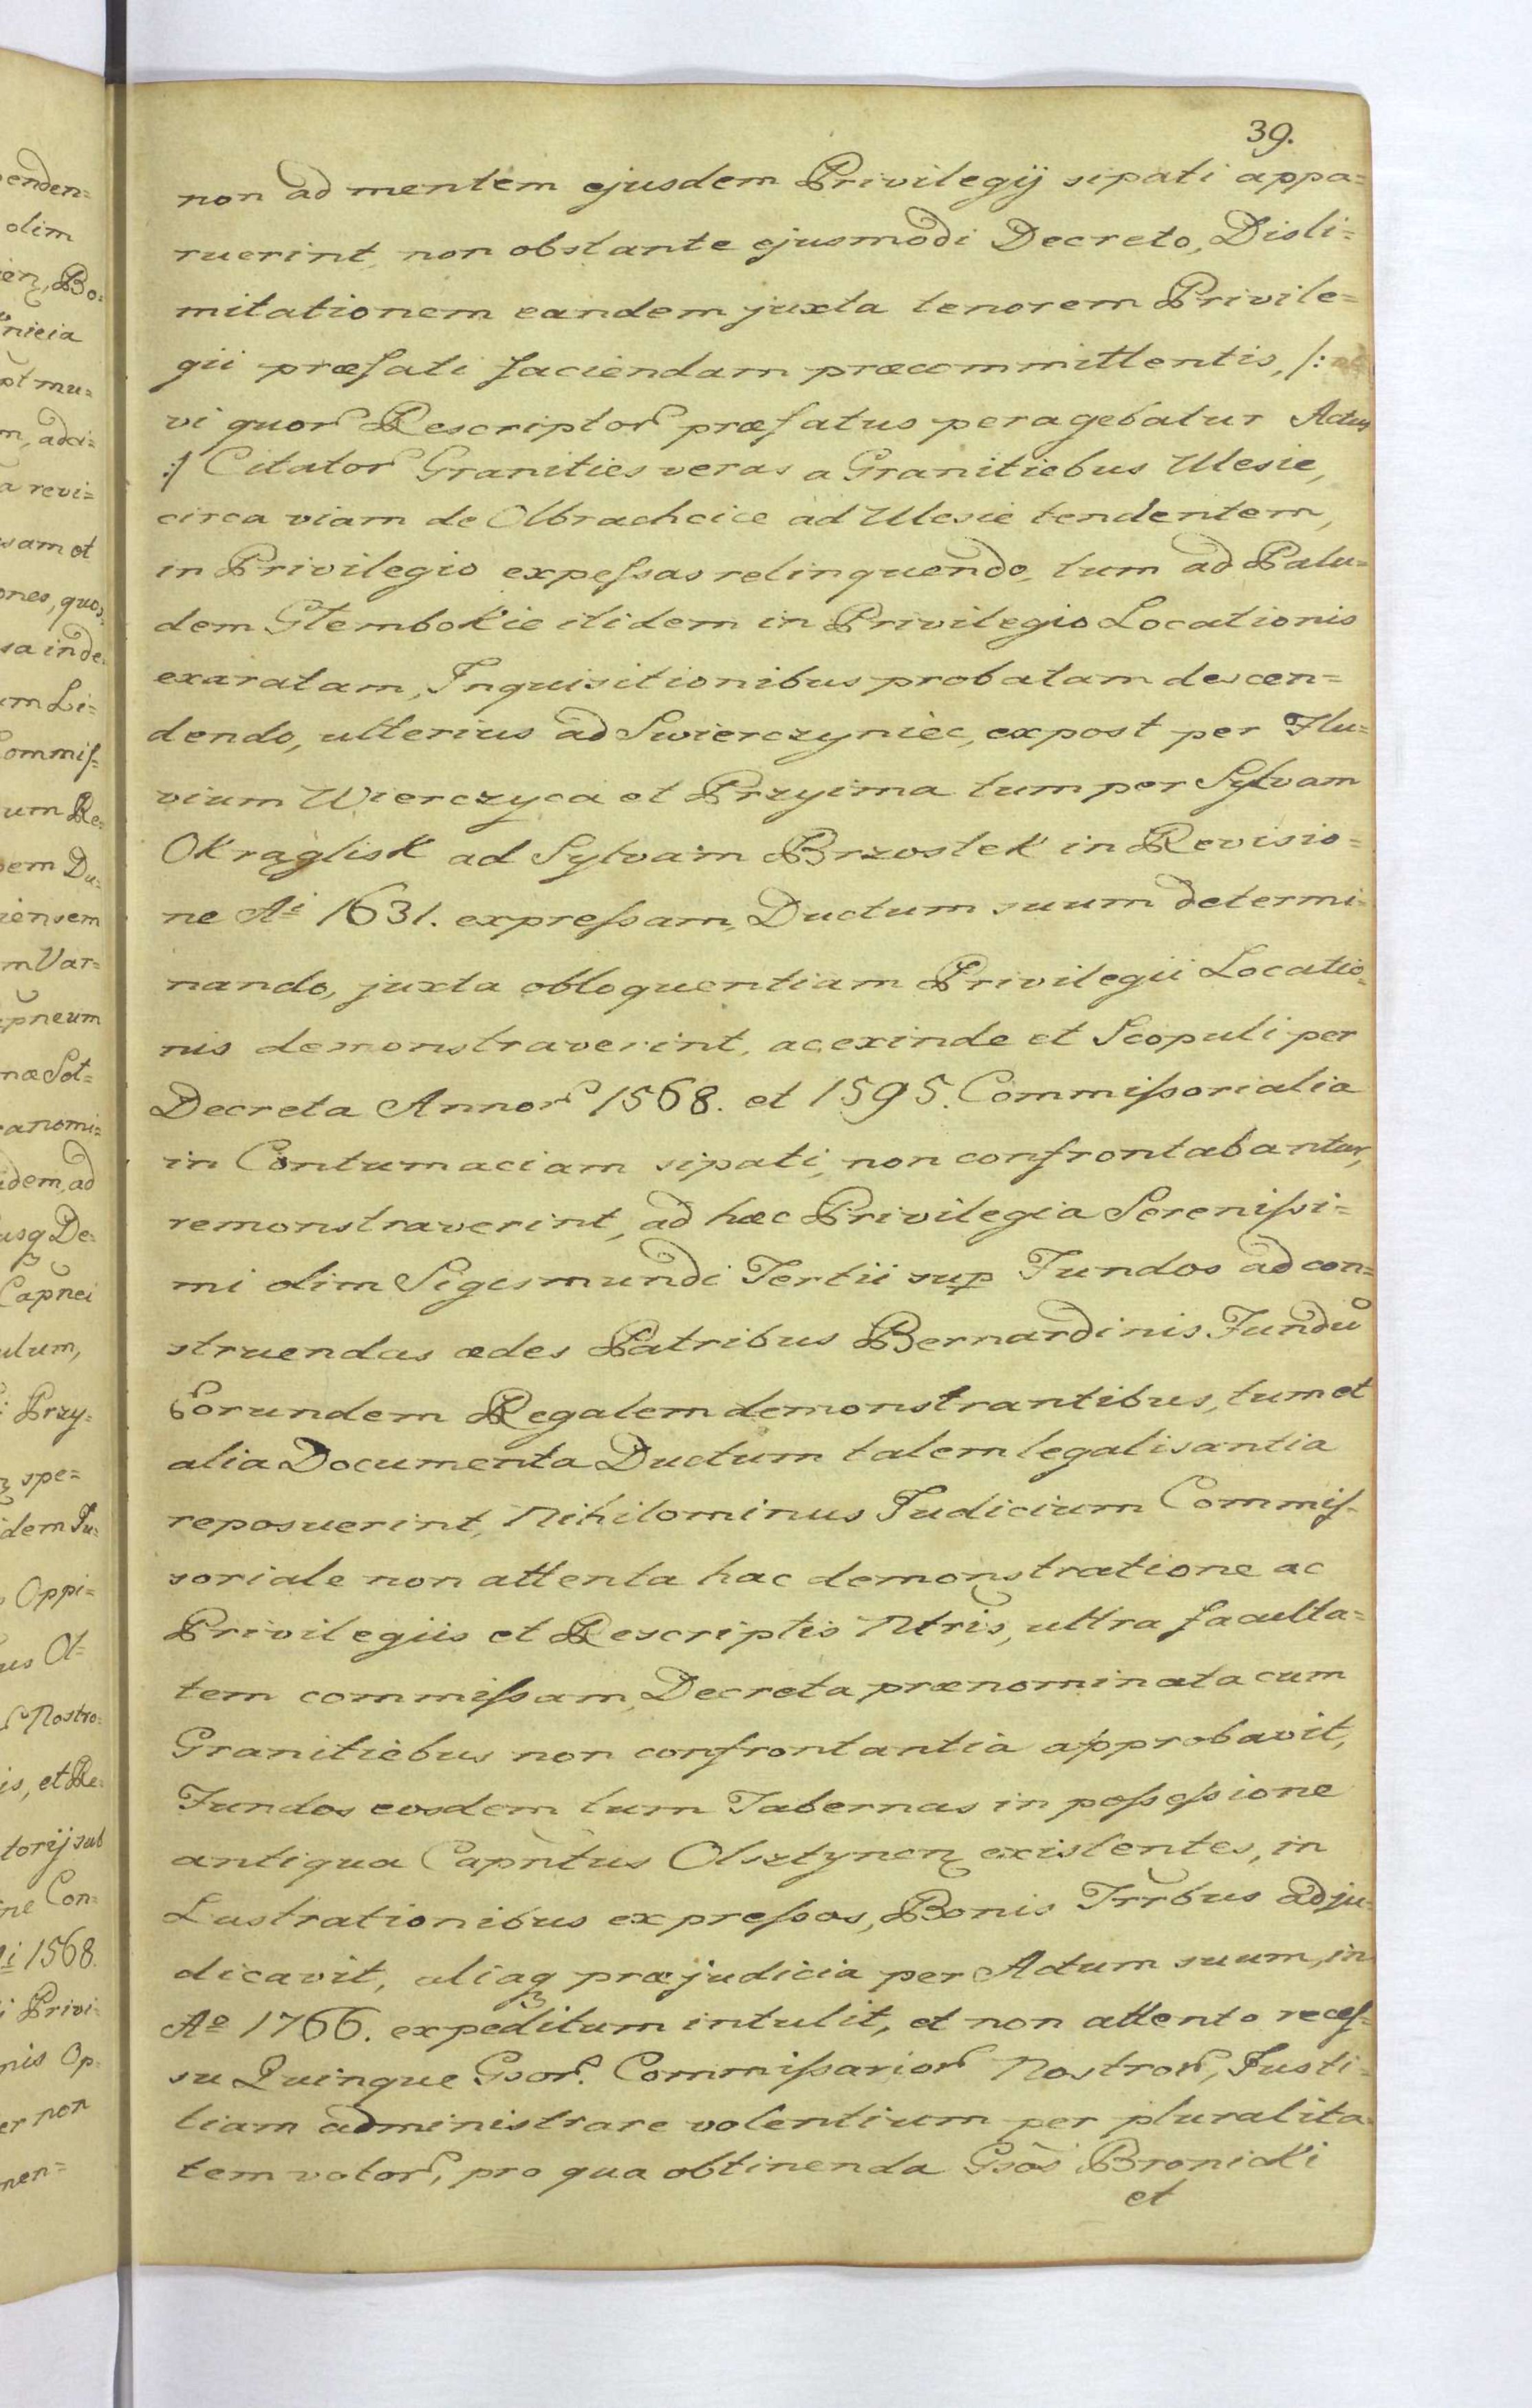 39.
non ad mentem ejusdem Privilegij sipati appa=
ruerint, non obstante ejusmodi Decreto, Disli=
mitationem eandem juxta tenorem Privile=
gii præfati faciendam præcommittentis, /:
vi quor Rescriptor præfatus peragebatur Actus
:/ Citator Granities veras a Granitiebus Ulesie,
circa viam de Olbrachcice ad Ulesie tendentem,
in Privilegio expeſsas relinquendo, tum ad Palu=
dem Glembokie itidem in Privilegio Locationis
exaratam, Inquisitionibus probatam descen=
dendo, ulterius ad Swierczyniec, expost per Flu=
vium Wierczyca et Przyima tum per Sylvam
Okrąglisk ad Sylvam Brzostek in Revisio=
ne Ai 1631. expreſsam, Ductum suum determi=
nando, juxta obloquentiam Privilegii Locatio=
nis demonstraverint, ac exinde et Scopuli per
Decreta Annor 1568. et 1595. Commiſsorialia
in Contumaciam sipati, non confrontabantur,
remonstraverint, ad hæc Privilegia Sereniſsi=
mi olim Sigismundi Tertii sup Fundos ad con=
struendas ædes Patribus Bernardinis Fundũ
Eorundem Regalem demonstrantibus, tum et
alia Documenta Ductum talem legalisantia
reposuerint, Nihilominus Judicium Commiſ=
soriale non attenta hac demonstratione ac
Privilegiis et Rescriptis Ntris, ultra faculta=
tem commiſsam, Decreta prænominata cum
Granitiebus non confrontantia approbavit,
Fundos eosdem tum Tabernas in poſseſsione
antiqua Capntus Olsztynen existentes, in
Lustrationibus expreſsos, Bonis Trrbus adju=
dicavit, aliaq præjudicia per Actum suum, in
Ao 1766. expeditum intulit, et non attento receſ=
su Quinque Gsor. Commiſsarior Nostror, Justi=
tiam administrare volentium per pluralita=
tem votor, pro qua obtinenda Gsos Bronicki
et